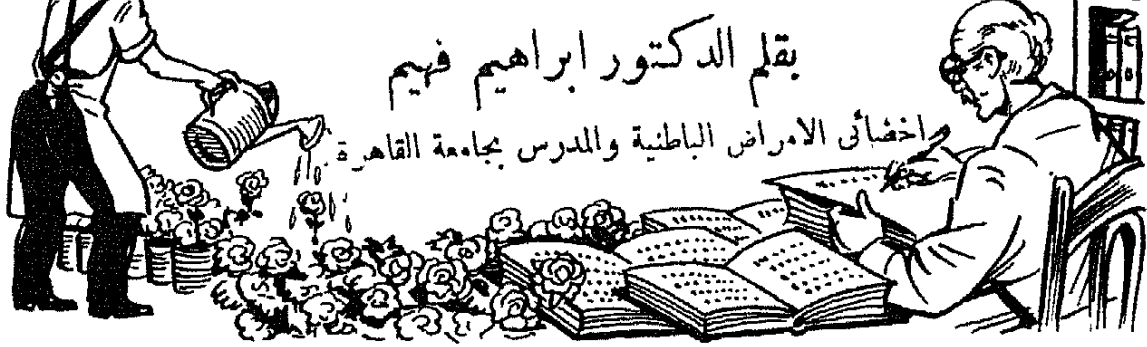 بقلم الدكتور ابراهيم فهيم
اخصائى الامراض الباطنية والمدرس بجامعة القاهرة